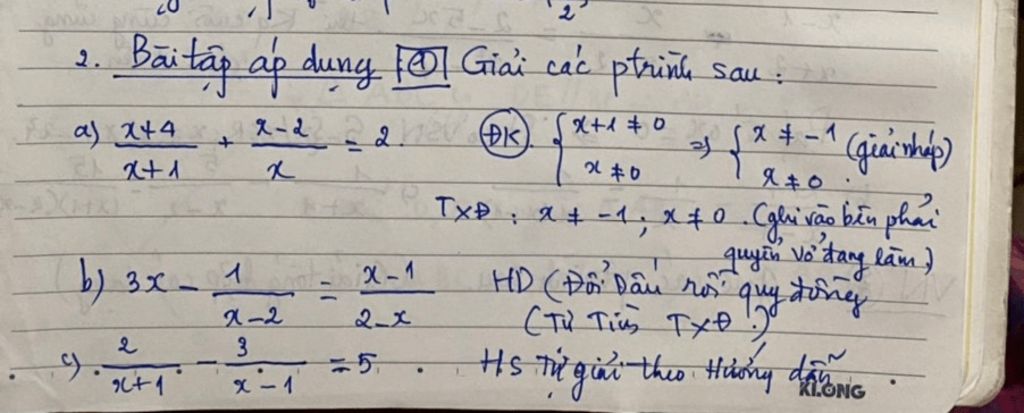 2
2. Bài tập áp dụng ① Giải các ptrình sau:
a) \frac{x+4}{x+1} + \frac{x-2}{x} = 2. ĐK. { x+1 ≠ 0 x ≠ 0 => { x ≠ -1 x ≠ 0. (giải nháp)
TXĐ: x ≠ -1; x ≠ 0. (ghi vào bên phải
quyển vở đang làm)
b) 3x - \frac{1}{x-2} = \frac{x-1}{2-x} HD (Đổi Dấu rồi quy đồng
(Tự Tìm TXĐ.)
c) \frac{2}{x+1} - \frac{3}{x-1} = 5. HS Tự giải theo Hướng dẫn.
KLONG